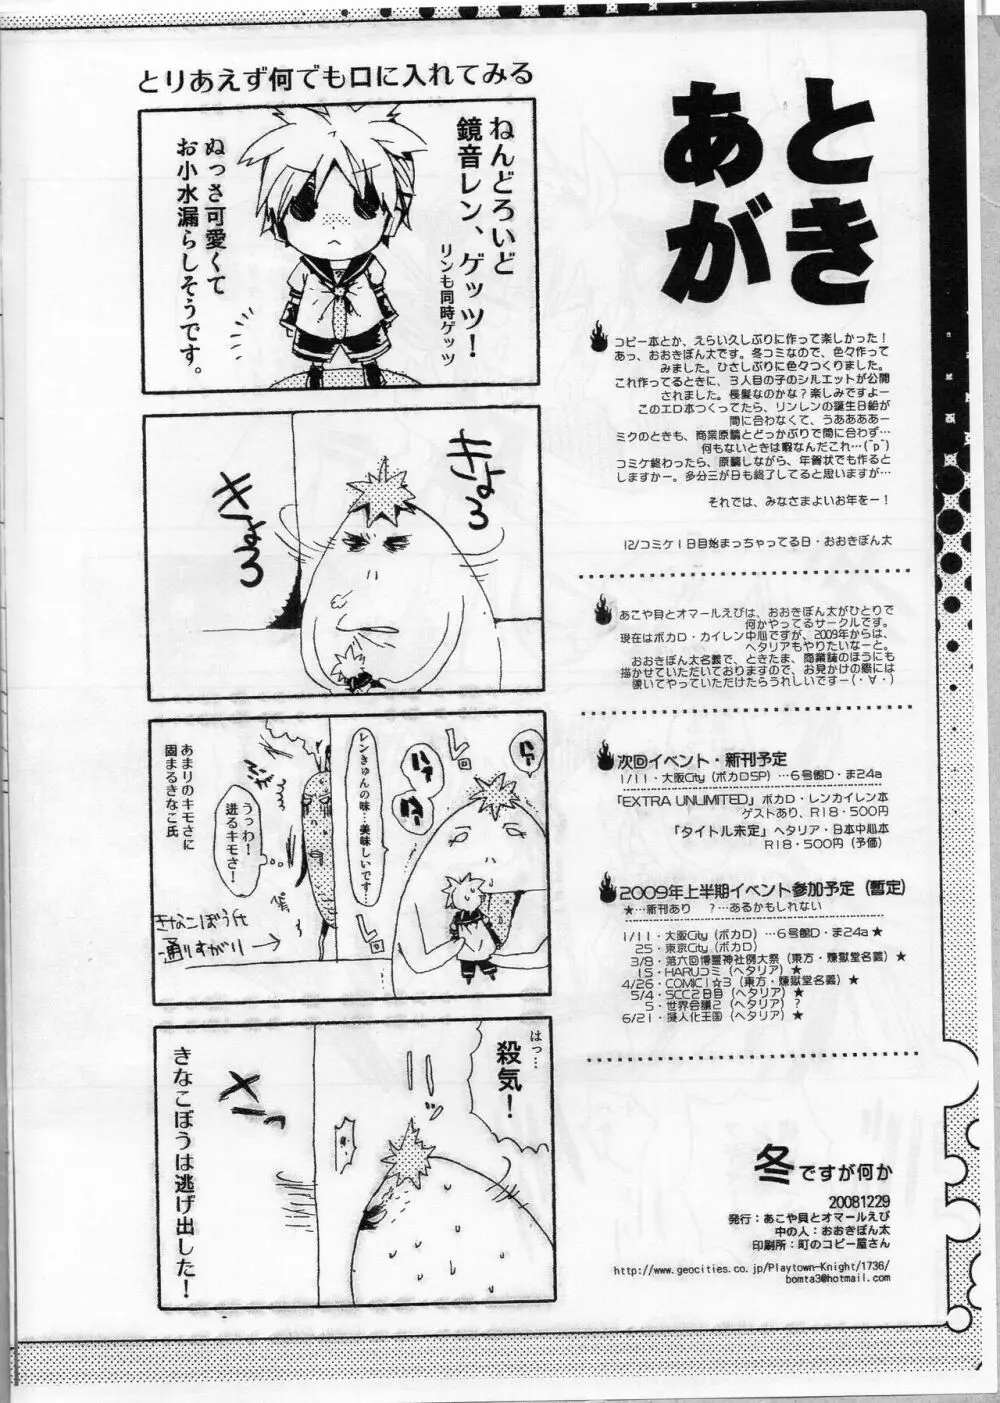 あとがき
コピー本とか、えらい久しぶりに作って楽しかった！
あっ、おおきぼん太です。冬コミなので、色々作って
みました。ひさしぶりに色々つくりました。
これ作ってるときに、３人目の子のシルエットが公開
されました。長髪なのかな？楽しみですよー
このエロ本つくってたら、リンレンの誕生日絵が
間に合わなくて、うああああー
ミクのときも、商業原稿とどっかぶりで間に合わず…
何もないときは暇なんだこれ…(˝p˝)
コミケ終わったら、原稿しながら、年賀状でも作ると
しますかー。多分三が日も終了してると思いますが…
それでは、みなさまよいお年をー！
12/コミケ１日目始まっちゃってる日・おおきぼん太
あこや貝とオマールえびは、おおきぼん太がひとりで
何かやってるサークルです。
現在はボカロ・カイレン中心ですが、2009年からは、
ヘタリアもやりたいなーと。
おおきぼん太名義で、ときたま、商業誌のほうにも
描かせていただいておりますので、お見かけの際には
覗いてやっていただけたらうれしいですー(・∀・)
次回イベント・新刊予定
1/11・大阪City（ボカロSP）…６号館D・ま24a
「EXTRA UNLIMITED」ボカロ・レンカイレン本
ゲストあり、R18・500円
「タイトル未定」ヘタリア・日本中心本
R18・500円（予価）
2009年上半期イベント参加予定（暫定）
★…新刊あり　？…あるかもしれない
1/11・大阪City（ボカロ）…６号館D・ま24a★
25・東京City（ボカロ）
3/8・第六回博麗神社例大祭（東方・煉獄堂名義）★
15・HARUコミ（ヘタリア）★
4/26・COMIC1☆3（東方・煉獄堂名義）★
5/4・SCC２日目（ヘタリア）★
5・世界会議２（ヘタリア）？
6/21・擬人化王国（ヘタリア）★
冬ですが何か
20081229
発行：あこや貝とオマールえび
中の人：おおきぼん太
印刷所：町のコピー屋さん
http://www.geocities.co.jp/Playtown-Knight/1736/
bomta3@hotmail.com
とりあえず何でも口に入れてみる
ねんどろいど
鏡音レン、ゲッツ！
リンも同時ゲッツ
ぬっさ可愛くて
お小水漏らしそうです。
きょろ
きょろ
ハァ
ハァ
ハァ
レロ
レロ
レンきゅんの味…美味しいです…
うっわ！
迸るキモさ！
あまりのキモさに
固まるきなこ氏
きなこぼう氏
通りすがり
はっ…
殺気！
きなこぼうは逃げ出した！